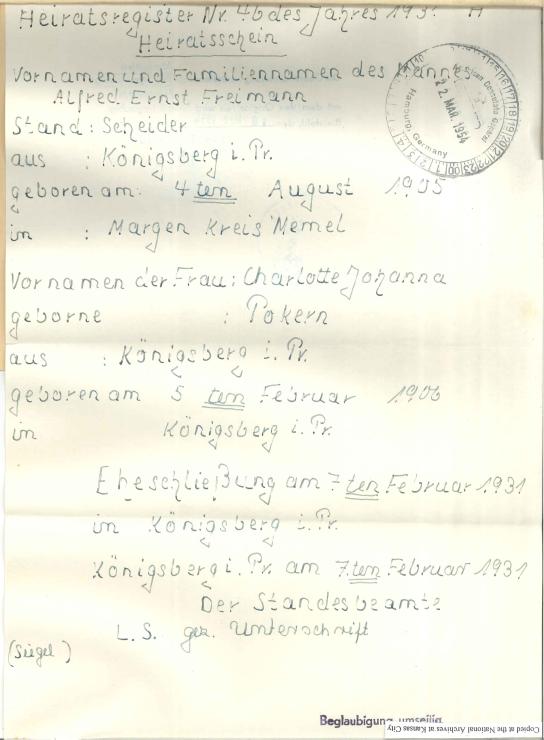 Heiratsregister Nr. 46 des Jahres 193
Heiratsschein
Vornamen und Familiennamen des Mannes
Alfred Ernst Freimann
Stand : Scheider
aus : Königsberg i. Pr.
geboren am: 4 ten August 1905
in : Margen Kreis Memel
Vornamen der Frau : Charlotte Johanna
geborne : Pokern
aus : Königsberg i. Pr.
geboren am 5 ten Februar 1906
in Königsberg i. Pr.
Eheschließung am 7 ten Februar 1931
in Königsberg i. Pr.
Königsberg i. Pr. am 7. ten Februar 1931
Der Standesbeamte
L. S. gez. Unterschrift
(Siegel)
Beglaubigung umseitig
Copied at the National Archives at Kansas City
Consulate General
22. MAR. 1954
Hamburg, Germany